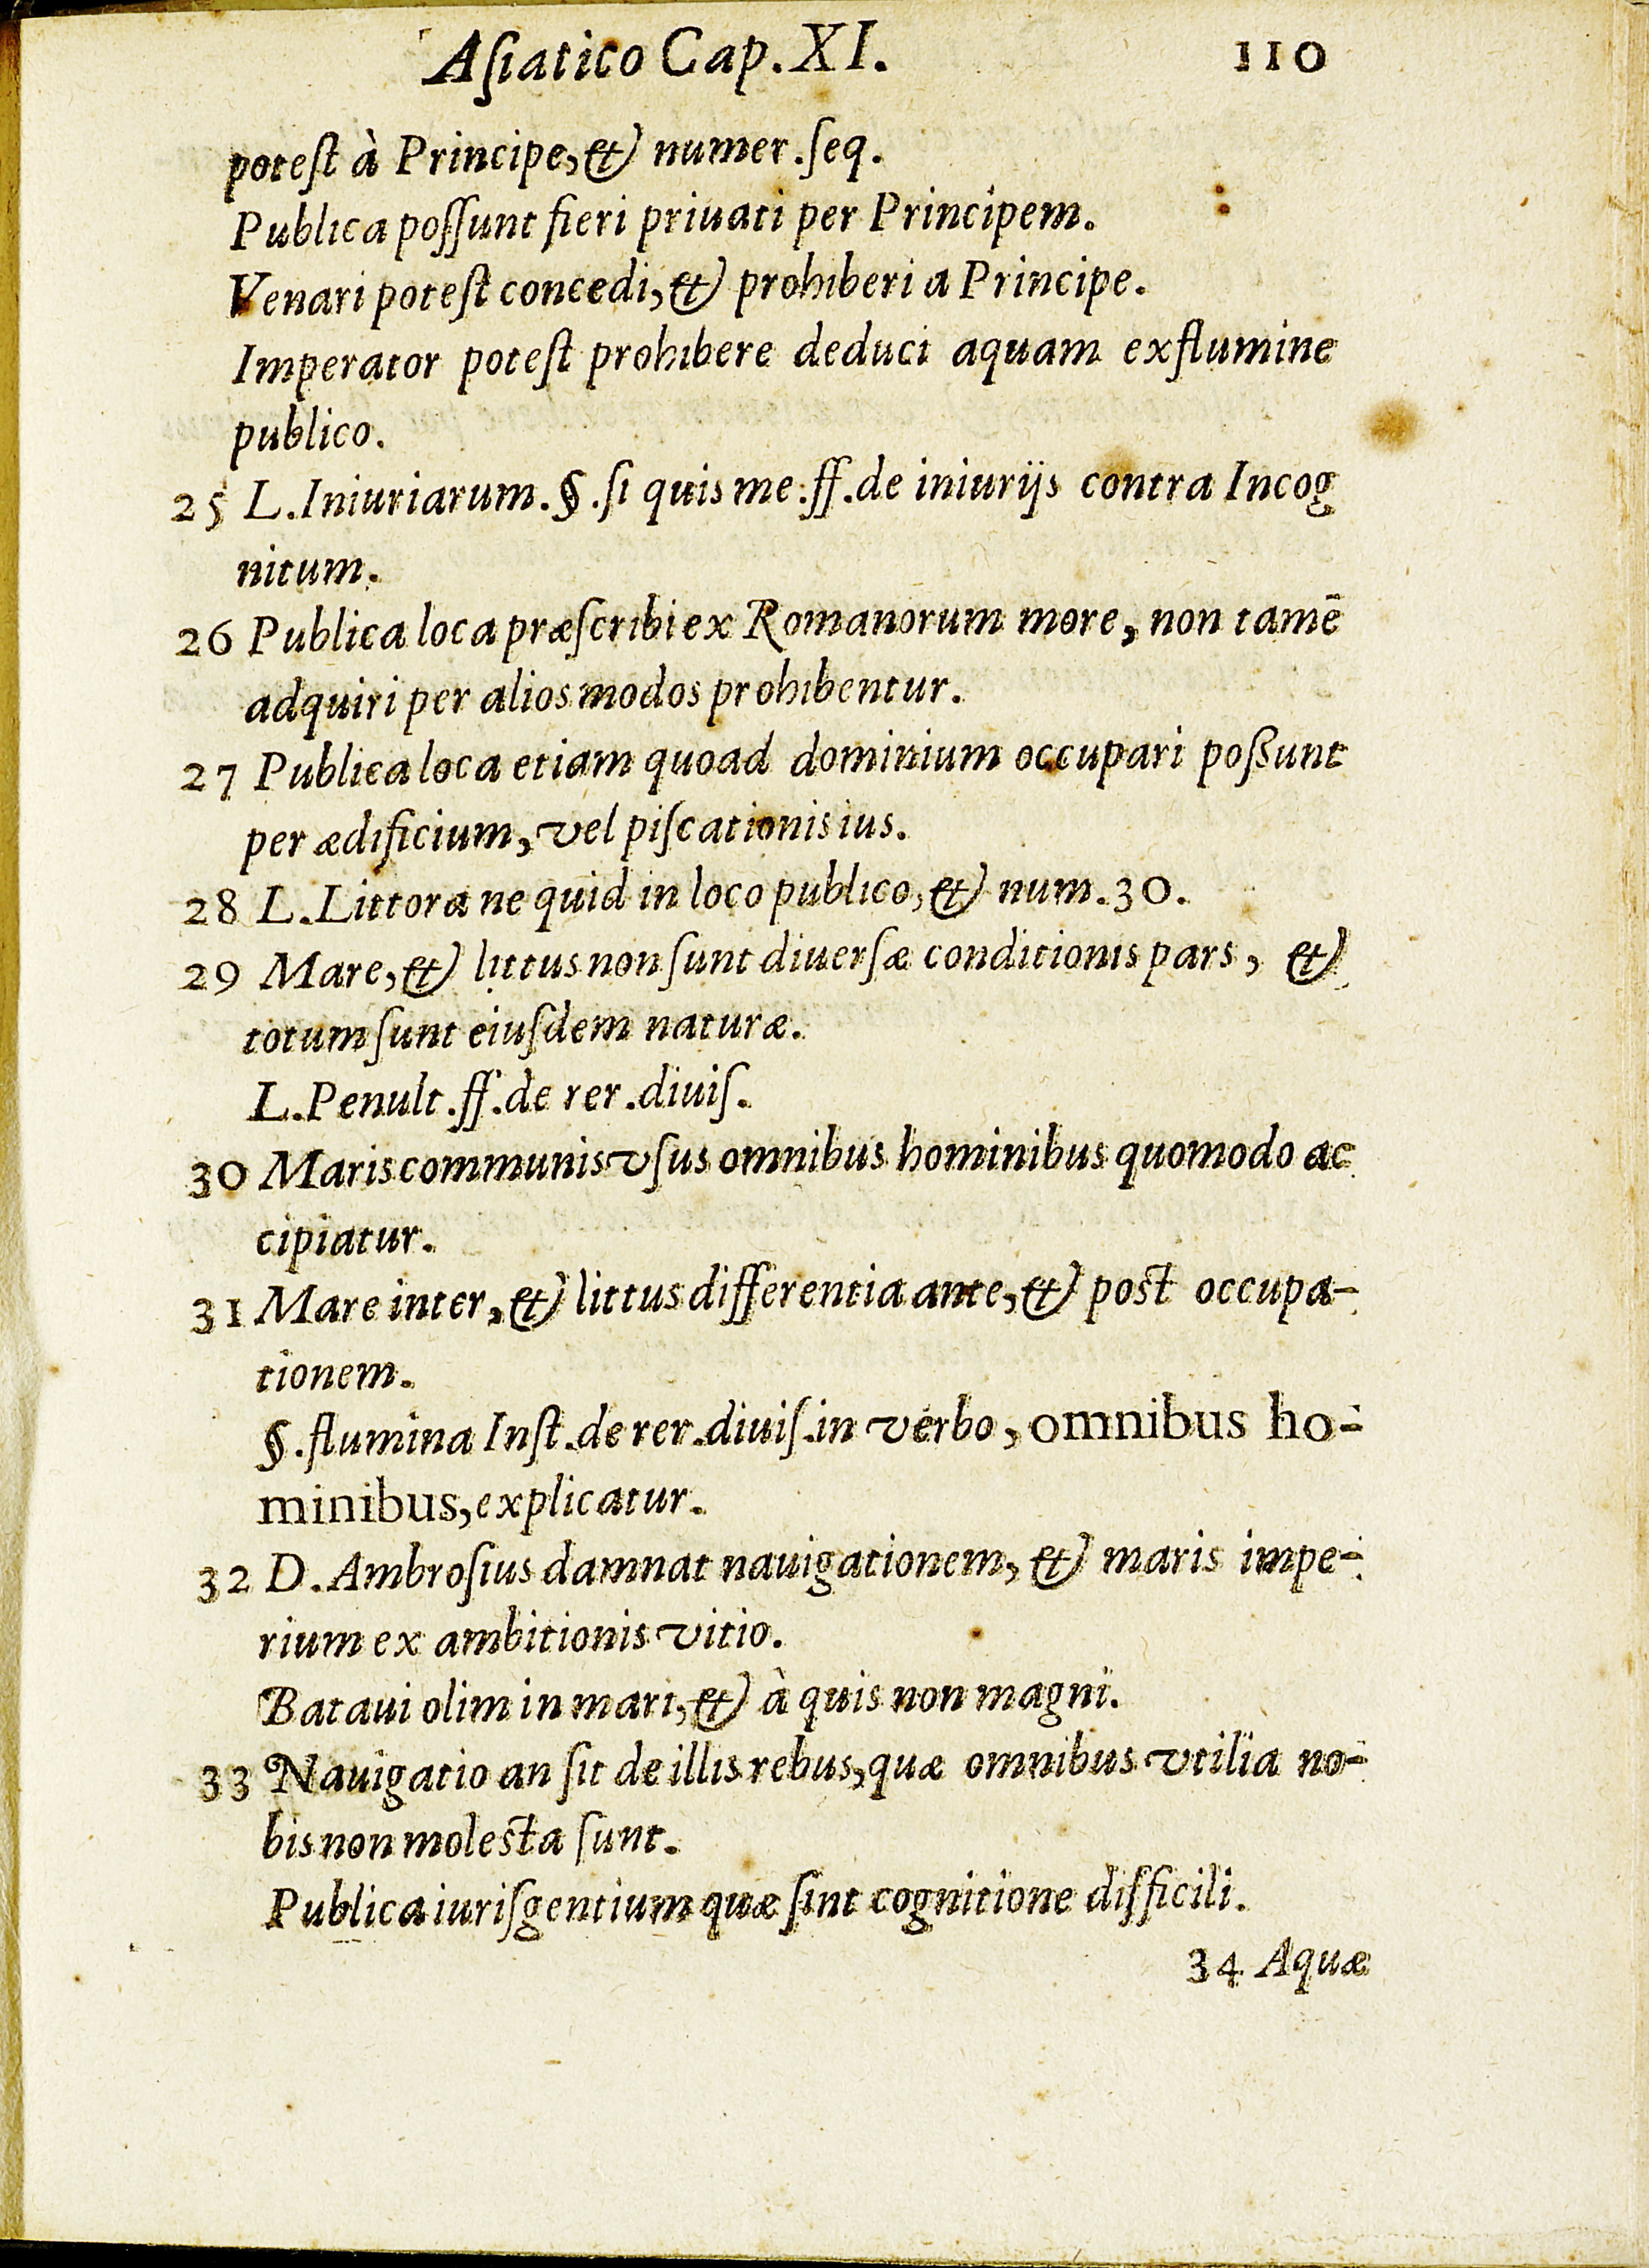 Aſiatico Cap. XI. 110
poteſt à Principe, & numer. ſeq.
Publica poſſunt fieri priuati per Principem.
Venari poteſt concedi, & prohiberi a Principe.
Imperator poteſt prohibere deduci aquam ex flumine
publico.
25 L. Iniuriarum. §. ſi quis me. ff. de iniurijs contra Incog
nitum.
26 Publica loca præſcribi ex Romanorum more, non tamē
adquiri per alios modos prohibentur.
27 Publica loca etiam quoad dominium occupari poßunt
per ædificium, vel piſcationis ius.
28 L. Littora ne quid in loco publico, & num. 30.
29 Mare, & littus non ſunt diuerſæ conditionis pars, &
totum ſunt eiuſdem naturæ.
L. Penult. ff. de rer. diuiſ.
30 Maris communis vſus omnibus hominibus quomodo ac
cipiatur.
31 Mare inter, & littus differentia ante, & poſt occupa-
tionem.
§. flumina Inſt. de rer. diuiſ. in verbo, omnibus ho-
minibus, explicatur.
32 D. Ambroſius damnat nauigationem, & maris impe-
rium ex ambitionis vitio.
Bataui olim in mari, & à quis non magni.
33 Nauigatio an ſit de illis rebus, quæ omnibus vtilia no-
bis non moleſta ſunt.
Publica iuriſgentium quæ ſint cognitione difficili.
34 Aquæ